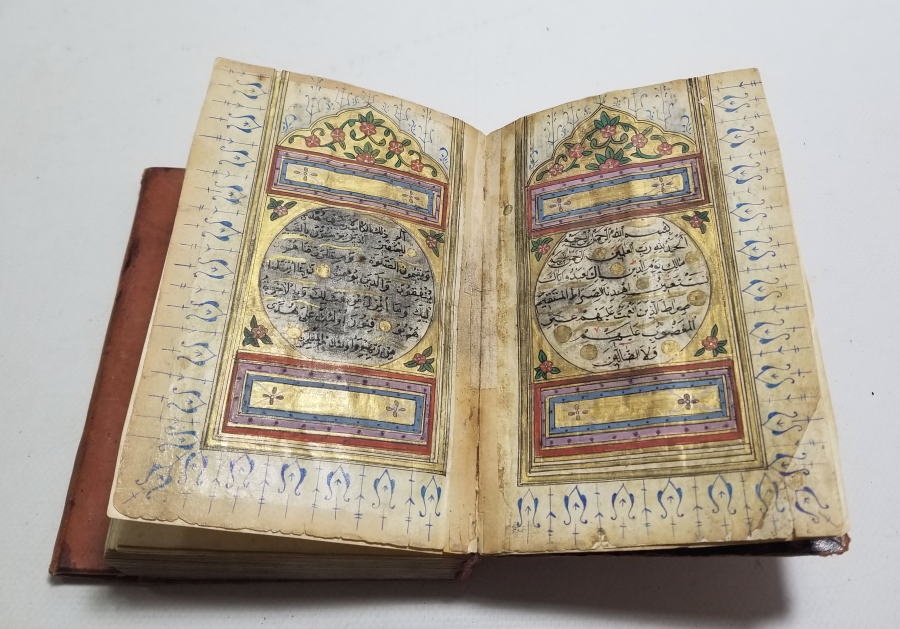 بسم الله الرحمن الرحيم
الحمد لله رب العلمين
مالك يوم الدين اياك نعبد واياك
نستعين اهدنا الصراط المستقيم
صراط الذين انعمت عليهم غير
المغضوب عليهم
ولا الضالين
الم ذلك الكتاب
للمتقين الذين يؤمنون بالغيب
ويقيمون الصلوة
ينفقون والذين يؤمنون بما انزل
اليك وما انزل من قبلك وبالاخرة
هم يوقنون اولئك على هدى
من ربهم واولئك هم المفلحون